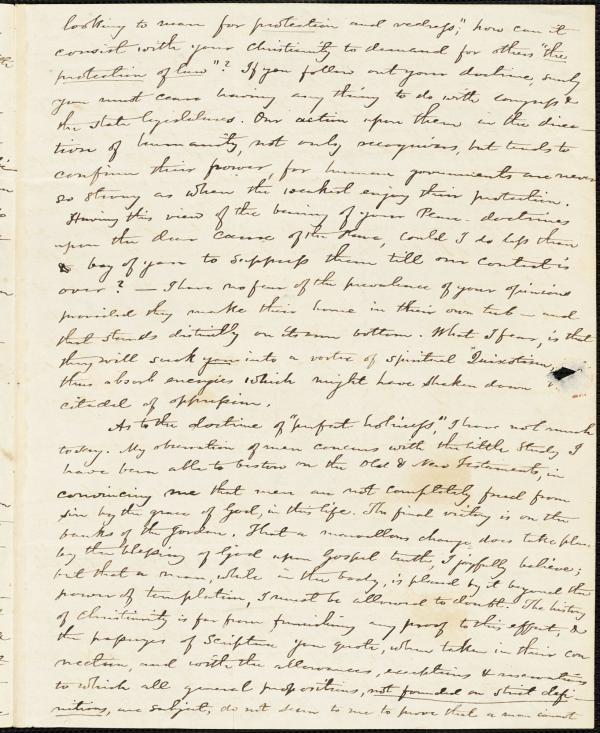 looking to man for protection and redress," how can it
consist with your Christianity to demand for others "the
protection of law"? If you follow out your doctrine, surely
you must cease having any thing to do with congress &
the State legislatures. Our action upon them in the direc-
tion of humanity, not only recognises, but tends to
confirm their power, for human governments are never
so strong as when the weakest enjoy their protection.
Having this view of the bearing of your Peace-doctrines
upon the dear cause of the slave, could I do less than
beg of you to suppress them till our contest is
over? — I have no fear of the prevalence of your opinions
provided they make their home in their own tub — and
that stands distinctly on its own bottom. What I fear, is that
they will suck you into a vortex of spiritual Quixotism,
thus absorb energies which might have shaken down
citadel of oppression.
As to the doctrine of "perfect holiness," I have not much
to say. My observation of men concurs with the little study I
have been able to bestow on the Old & New Testaments, in
convincing me that men are not completely freed from
sin by the grace of God, in this life. The final victory is on the
banks of the Jordan. That a marvellous change does take place
by the blessing of God upon Gospel truth, I joyfully believe;
but that a man, while in the body, is placed by it beyond the
power of temptation, I must be allowed to doubt. The history
of Christianity is far from furnishing any proof to this effect, &
the passages of Scripture you quote, when taken in their con
nection, and with the allowances, exceptions & reservations
to which all general propositions, not founded on strict defi-
nitions, are subject, do not seem to me to prove that a man cannot